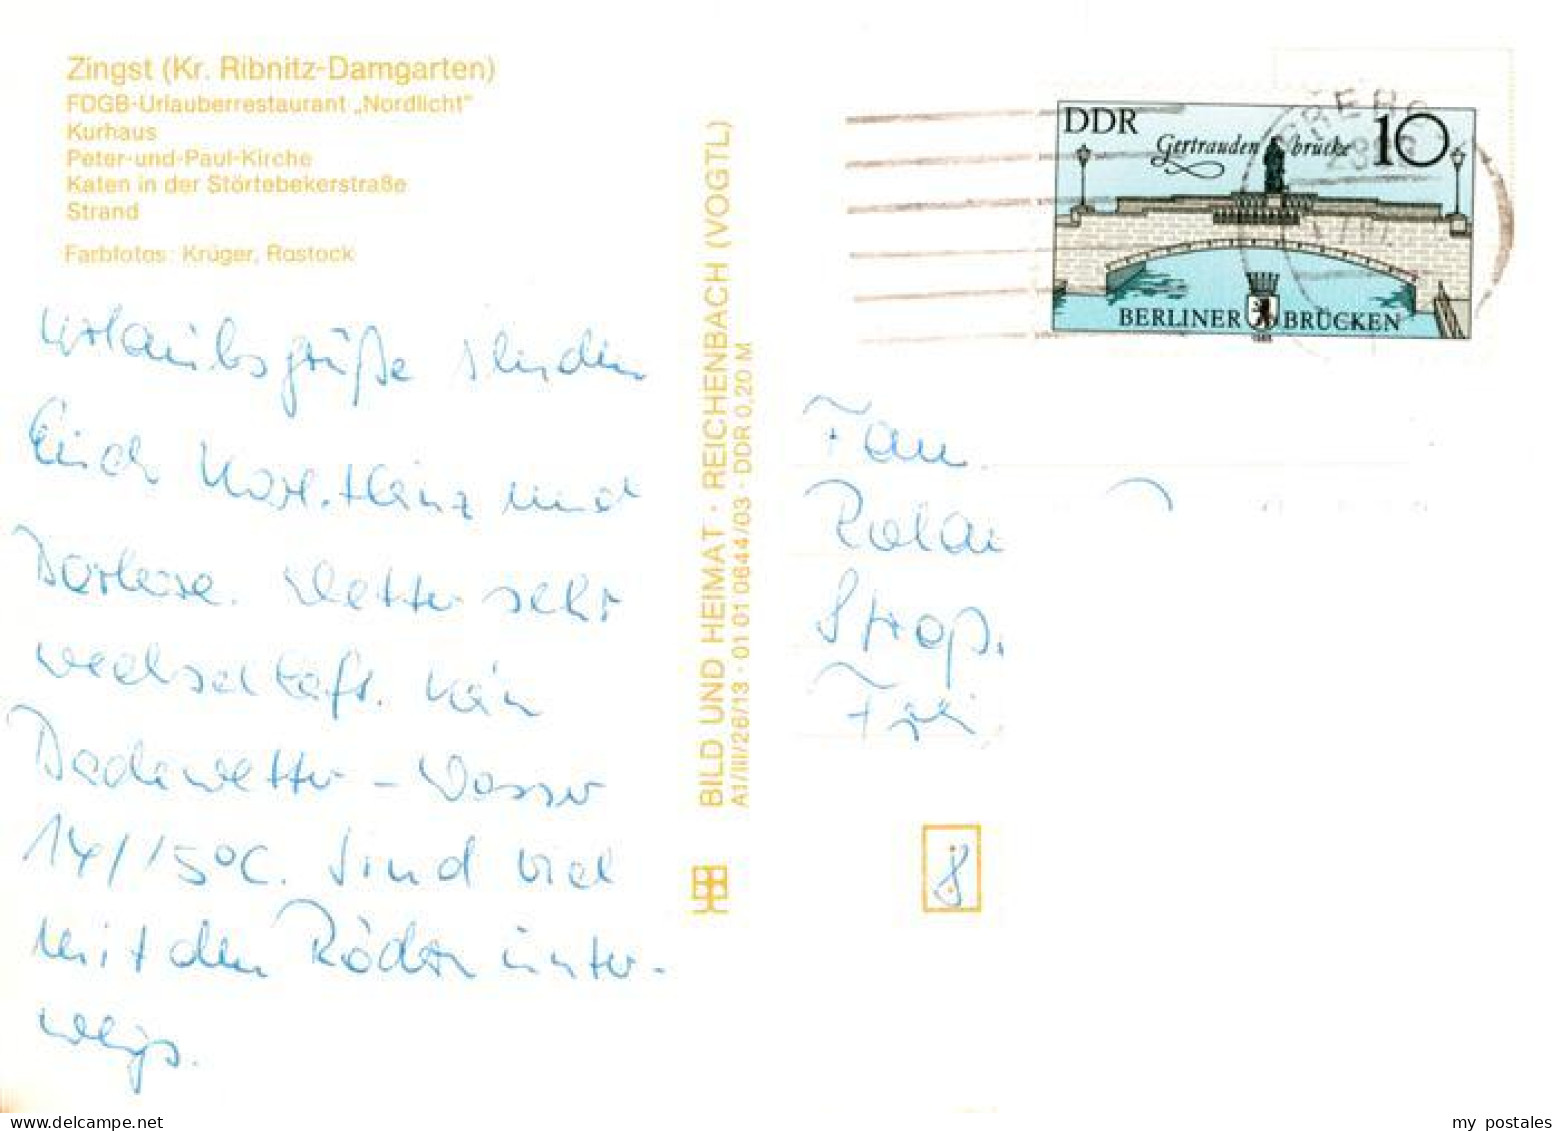 Zingst (Kr. Ribnitz-Damgarten)
FDGB-Urlauberrestaurant „Nordlicht"
Kurhaus
Peter-und-Paul-Kirche
Katen in der Störtebekerstraße
Strand
Farbfotos: Krüger, Rostock
Urlaubsgrüße senden
Euch Karl-Heinz und
Wetter sehr
wechselhaft. Kein
Badewetter – Wasser
14/15°C. Sind viel
mit den Rädern unter-
wegs.
BILD UND HEIMAT · REICHENBACH (VOGTL)
A1/III/26/13 · 01 01 0644/03 · DDR 0,20 M
DDR
Gertraudenbrücke
10
BERLINER BRÜCKEN
1985
Fam.
Rola
Straß.
Frei
my postales